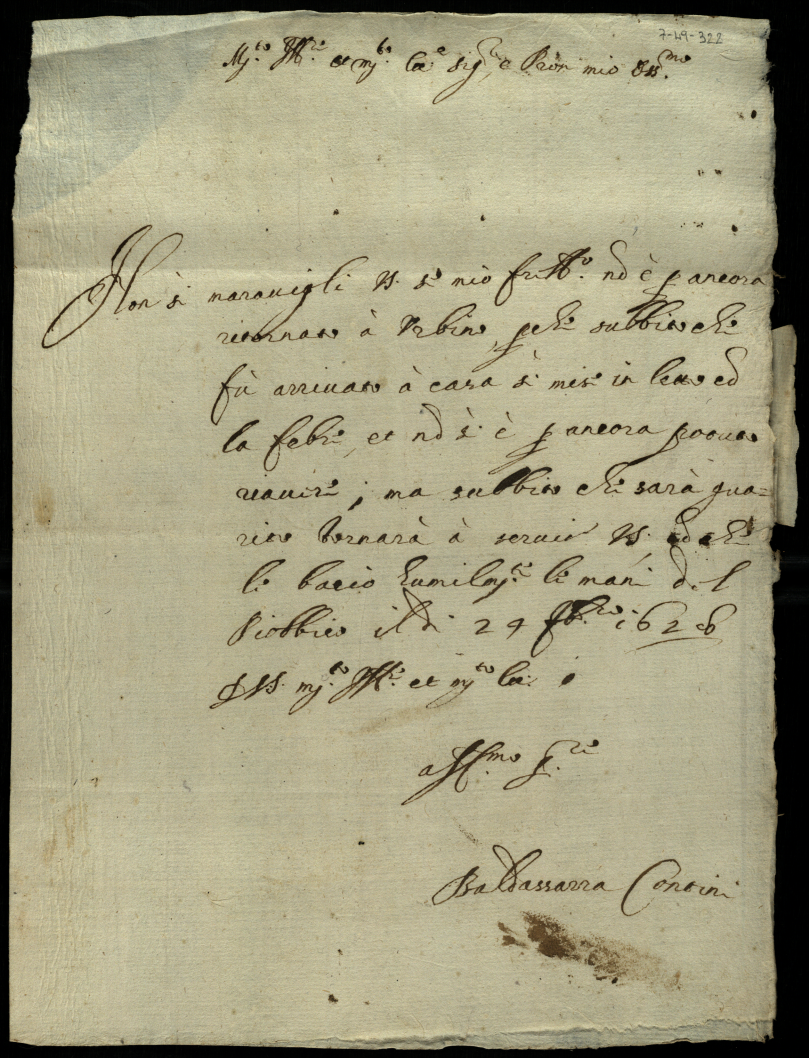 7-49-322
M.to Ill.re et m.to Ecc.e Sig.r e Pron mio oss.mo
Non si maravigli VS. se mio fratt.o nõ è p ancora
ritornato à Urbino, pche subbito che
fù arrivato à casa si mise in letto cõ
la febre, et nõ si è p ancora
; ma subbito che sarà gua=
rito tornarà à servir VS. cõ che
li bacio humilm.te le mani del
Piobbico il dì 24 1626
D VS. m.to Ill.re et m.to Ecc.
aff.mo S.re
Baldassarra Contini